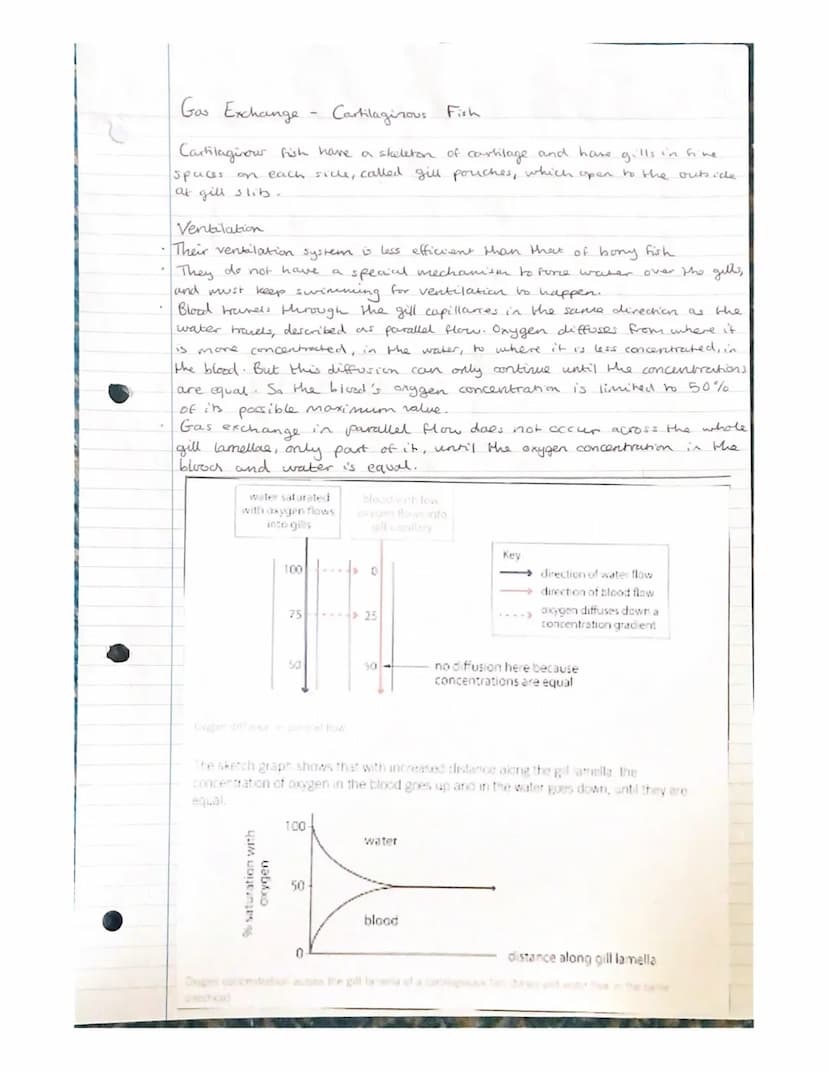 Gas Exchange - Cartilaginous Fish
Cartilaginous fish have a skeleton of cartilage and have gills in five
spaces on each side, called gill pouches, which open to the outside
at gill slits.
Ventilation
· Their ventilation system is less efficient than that of bony fish
· They do not have a special mechanism to force water over the gills,
and must keep swimming for ventilation to happen.
· Blood travels through the gill capillaries in the same direction as the
water travels, described as parallel flow. Oxygen diffuses from where it
is more concentrated, in the water, to where it is less concentrated, in
the blood. But this diffusion can only continue until the concentrations
are equal. So the blood's oxygen concentration is limited to 50%
of its possible maximum value.
· Gas exchange in parallel flow does not occur across the whole
gill lamellae, only part of it, until the oxygen concentration in the
blood and water is equal.
water saturated
with oxygen flows
into gills
blood with low
oxygen flows into
gill capillary
Key
direction of water flow
direction of blood flow
oxygen diffuses down a
concentration gradient
100 0
75 25
50 50
no diffusion here because
concentrations are equal
Oxygen diffusion in parallel flow
The sketch graph shows that with increased distance along the gill lamella, the
concentration of oxygen in the blood goes up and in the water goes down, until they are
equal.
% saturation with
oxygen
100
50
0
water
blood
distance along gill lamella
Oxygen concentration across the gill lamella of a cartilaginous fish in the same
direction